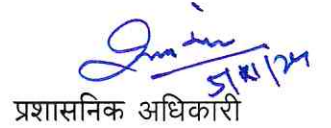 5/XI/24
प्रशासनिक अधिकारी